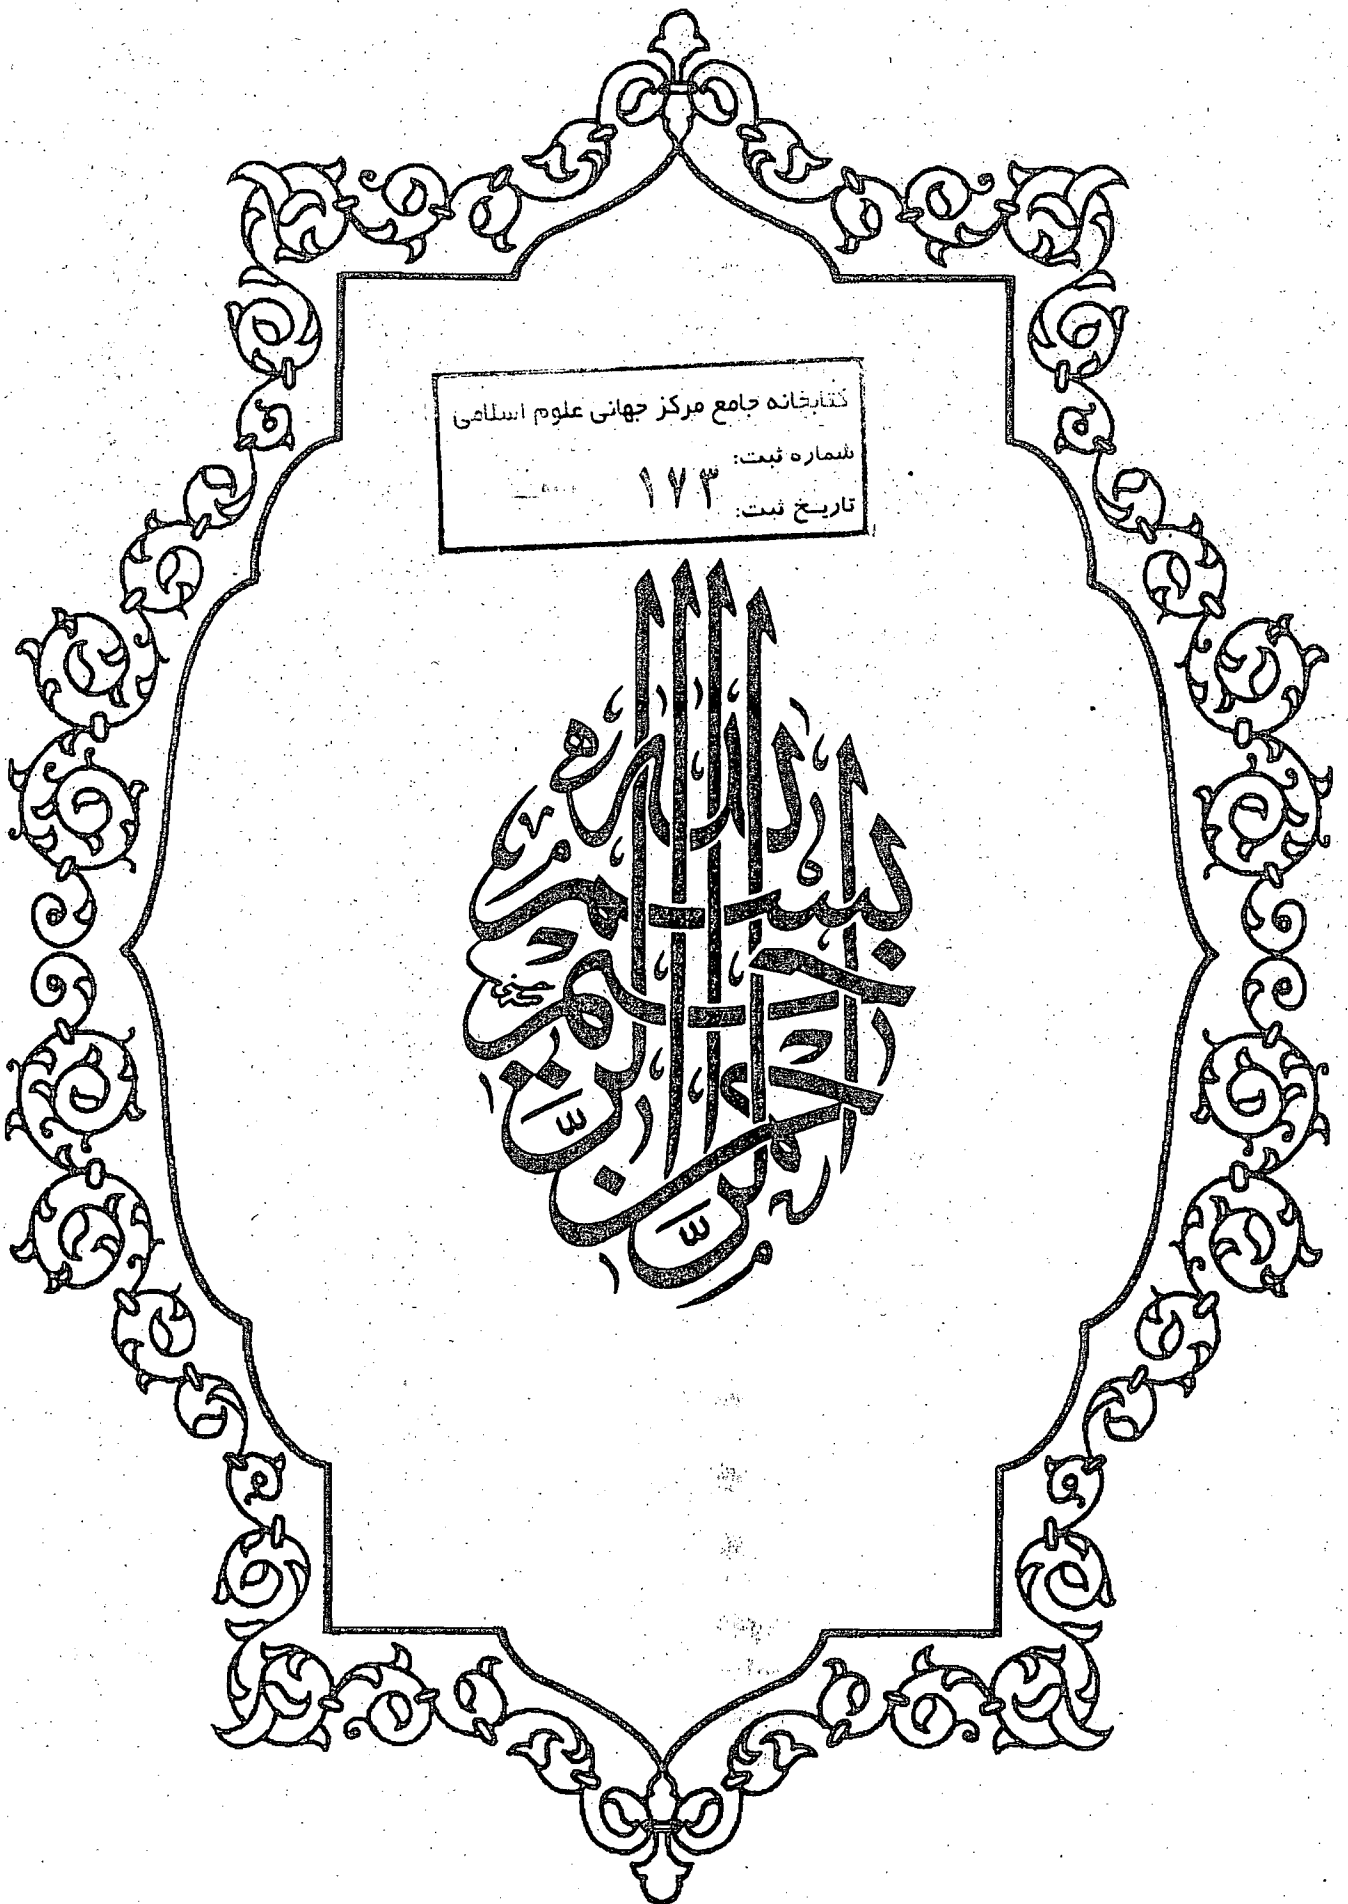 کتابخانه جامع مرکز جهانی علوم اسلامی
شماره ثبت:
۱۷۳
تاریخ ثبت:
بسم الله الرحمن الرحيم